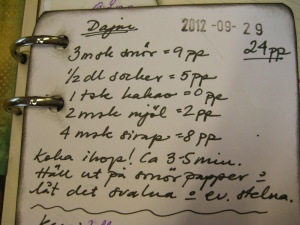 Dajm
2012-09-29
3 msk smör = 9pp
24pp
1/2 dl socker = 5pp
1 tsk kakao = 0pp
2 msk mjöl = 2pp
4 msk sirap = 8pp
Koka ihop! Ca 3-5 min.
Häll ut på smörpapper o
låt det svalna o ev. stelna.